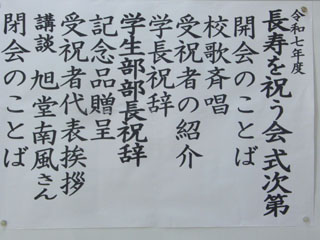 令和七年度
長寿を祝う会式次第
開会のことば
校歌斉唱
受祝者の紹介
学長祝辞
学生部部長祝辞
記念品贈呈
受祝者代表挨拶
講談 旭堂南風さん
閉会のことば